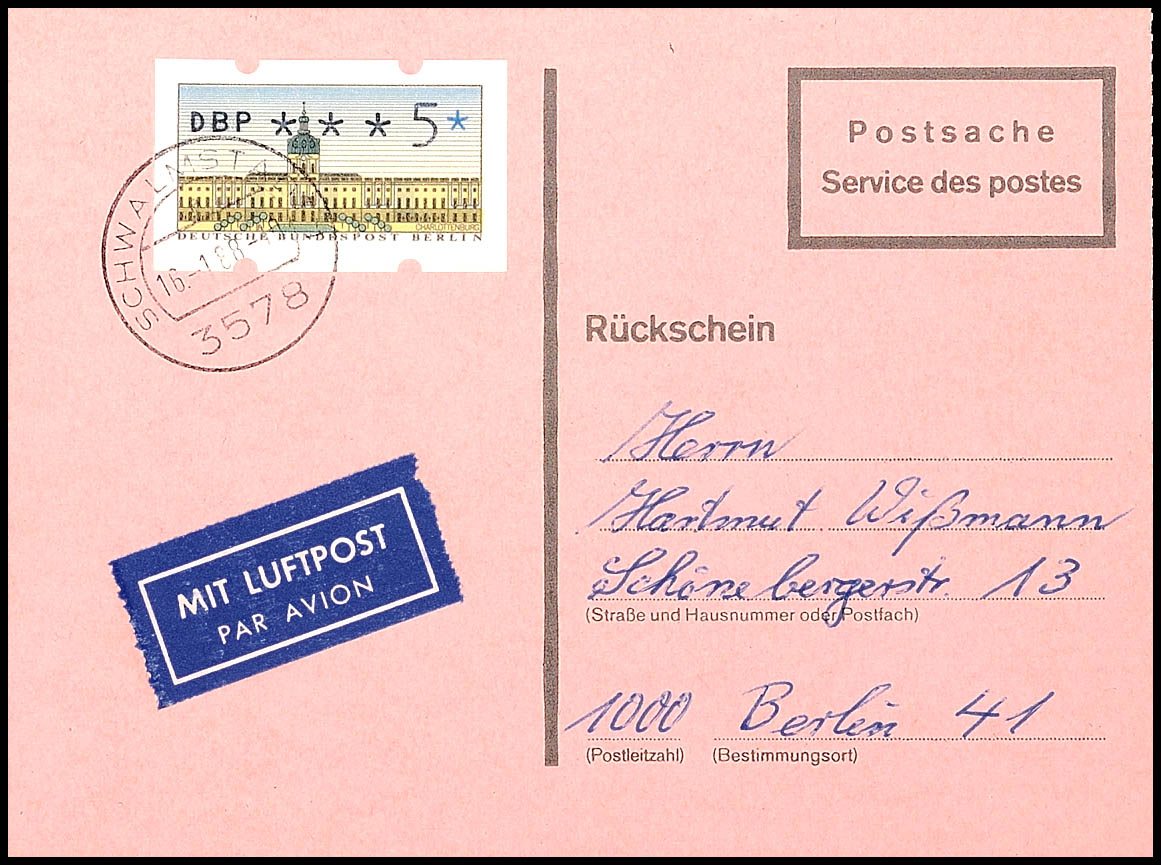 DBP * * * 5*
CHARLOTTENBURG
DEUTSCHE BUNDESPOST BERLIN
SCHWALMSTADT
16.-1.88
3578
MIT LUFTPOST
PAR AVION
Postsache
Service des postes
Rückschein
Herrn
Hartmut Wißmann
Schönebergerstr. 13
(Straße und Hausnummer oder Postfach)
1000 Berlin 41
(Postleitzahl) (Bestimmungsort)